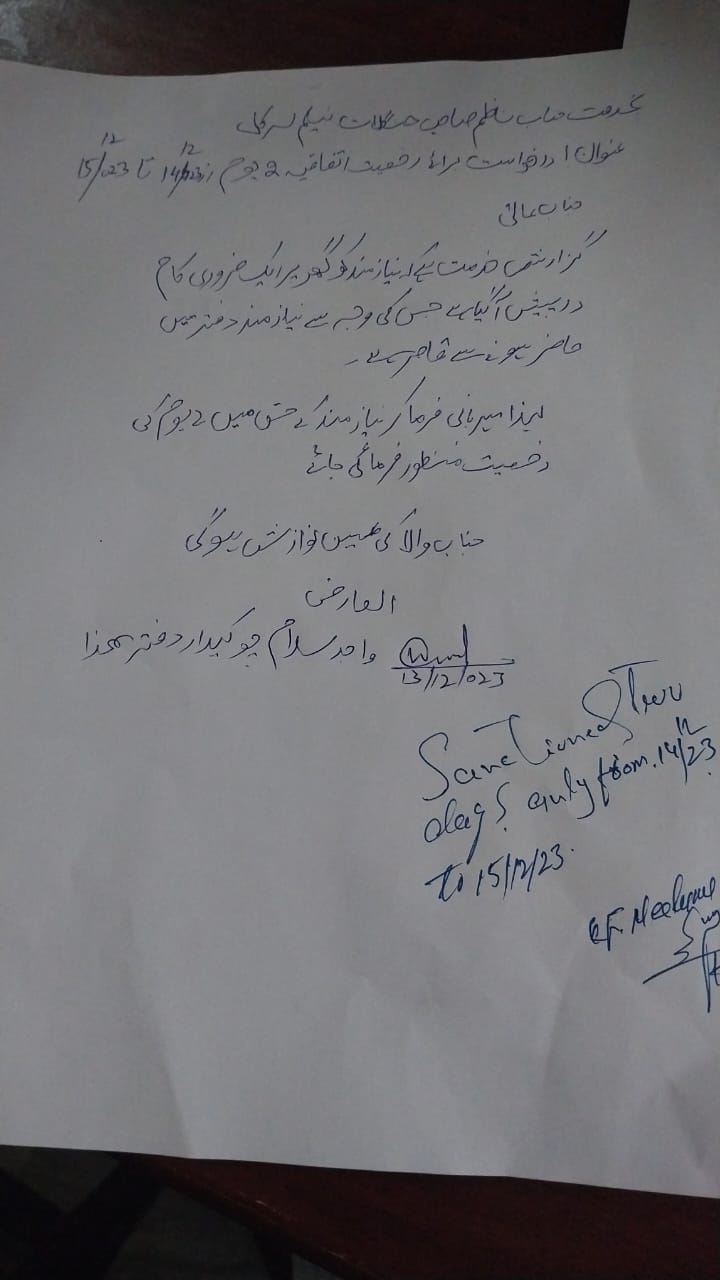 بخدمت جناب ناظم صاحب جنگلات نیلم سرکل
عنوان / درخواست برائے رخصت اتفاقیہ 2 یوم از 14/12/23 تا 15/12/023
جناب عالی
گزارش خدمت ہیکہ نیازمند کو گھر پر ایک ضروری کام
درپیش آگیا ہے جس کی وجہ سے نیازمند دفتر میں
حاضر ہونے سے قاصر ہے۔
لہذا مہربانی فرما کر نیازمند کے حق میں 2 یوم کی
رخصت منظور فرمائی جائے
جناب والا کی عین نوازش ہوگی
العارض
واجد سلام چوکیدار دفتر ھذا
13/12/023
Sanctioned Two
days only from 14/12/23
to 15/12/23.
CF Neelum